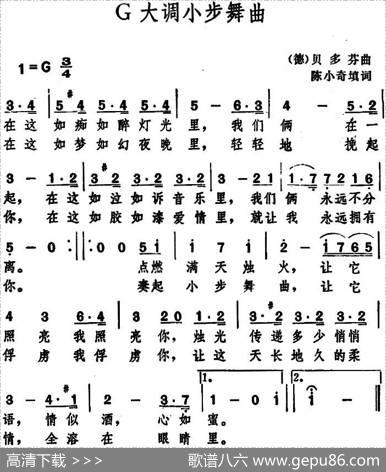 G 大调小步舞曲
1=G 3/4
(德)贝多芬曲
陈小奇填词
3·4 5·4 5·4 5·4 3·4 5 - 6·3 4 - 5·2
在这如痴如醉灯光里，我们俩在一
在这如梦如幻夜晚里，轻轻地挽起
3 - 1·2 3·2 3·2 3·2 1·2 3 - 4·1 1·7 7216
起，在这如泣如诉音乐里，我们俩永远不分
你，在这如胶如漆爱情里，就让我永远拥有
5 - 0 :‖: 0 0 5i i 7 i i 7 i 2 - i765
离。点燃满天烛火，让它
你。奏起小步舞曲，让它
4 3 6·4 4 3 2 0 1·2 3·2 3·2 3·2 1·2
照亮我照亮你，烛光传递多少悄悄
俘虏我俘虏你，让这天长地久的柔
3 - 4·1 1·7 2·7 1 - 0 :‖ 1 - ‖
语，情似酒，心如蜜。
情，全溶在眼睛里。
高清下载 >>>
歌谱八六 www.gepu86.com